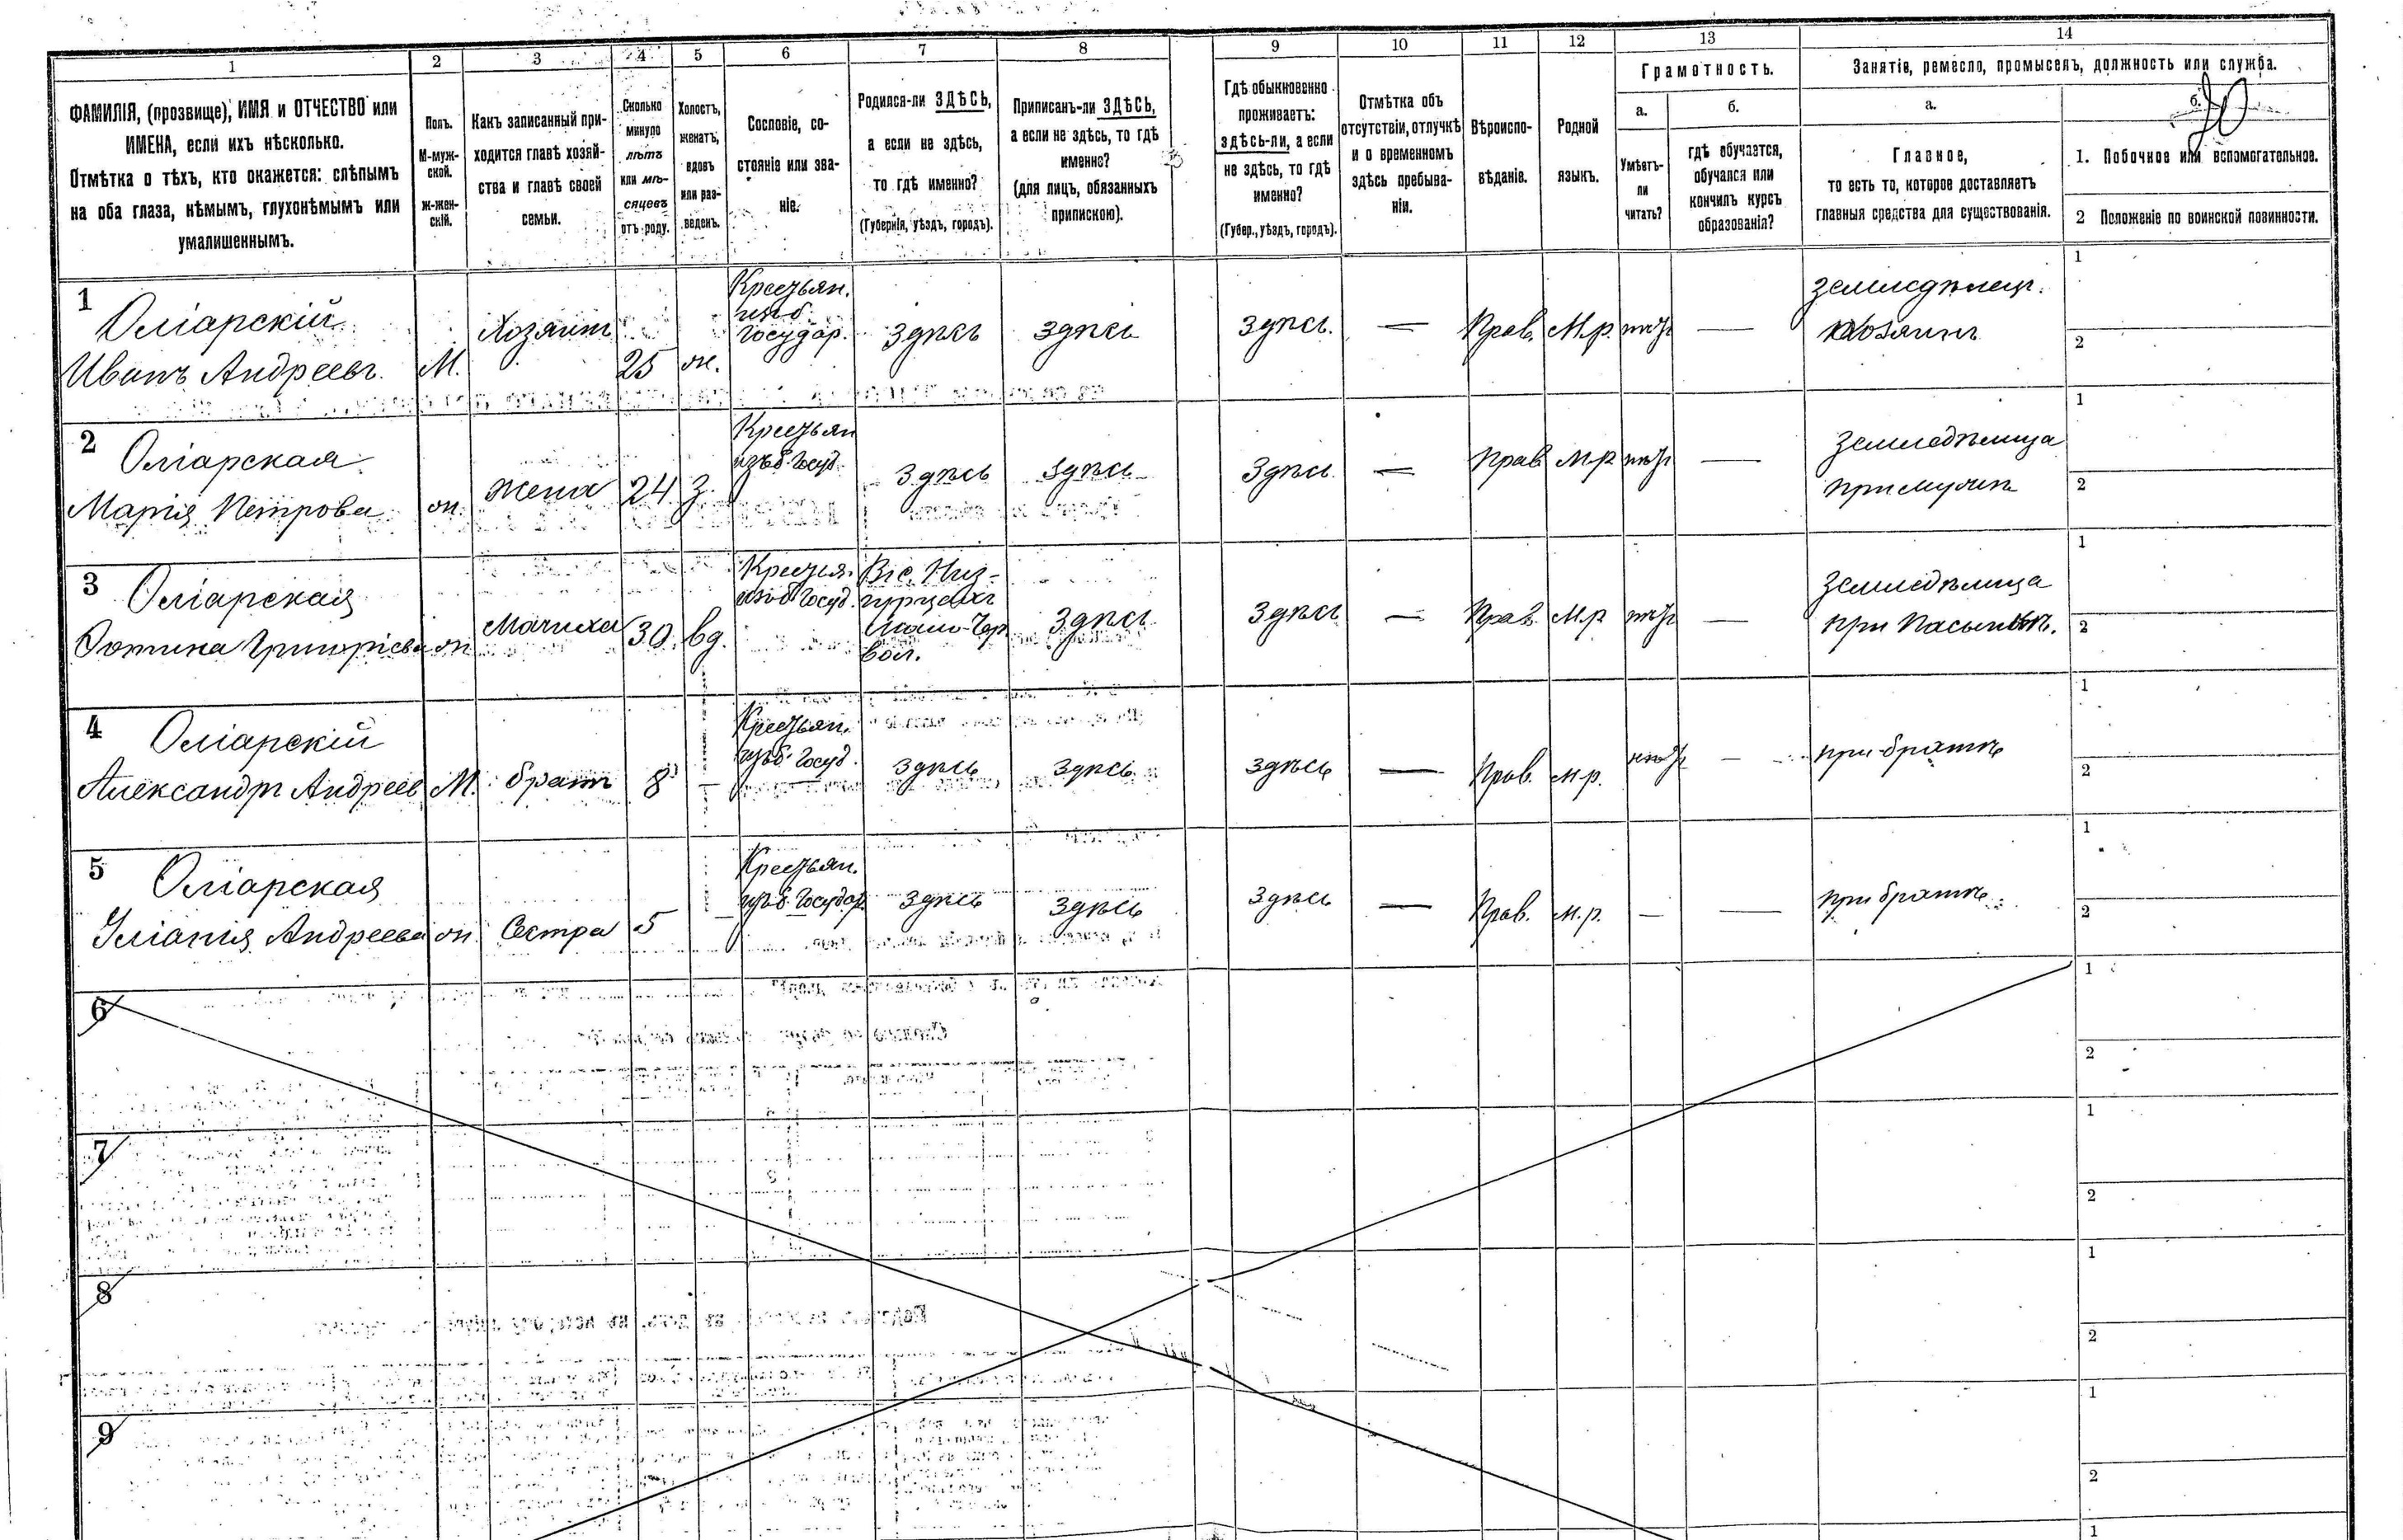 1 2 3 4 5 6 7 8 9 10 11 12 13 14
ФАМИЛІЯ, (прозвище), ИМЯ и ОТЧЕСТВО или
ИМЕНА, если ихъ нѣсколько.
Отмѣтка о тѣхъ, кто окажется: слѣпымъ
на оба глаза, нѣмымъ, глухонѣмымъ или
умалишеннымъ.
Полъ.
М-муж-
ской.
Ж-жен-
скій.
Какъ записанный при-
ходится главѣ хозяй-
ства и главѣ своей
семьи.
Сколько
минуло
лѣтъ
или мѣ-
сяцевъ
отъ роду.
Холостъ,
женатъ,
вдовъ
или раз-
веденъ.
Сословіе, со-
стояніе или зва-
ніе.
Родился-ли ЗДѢСЬ,
а если не здѣсь,
то гдѣ именно?
(Губернія, уѣздъ, городъ).
Приписанъ-ли ЗДѢСЬ,
а если не здѣсь, то гдѣ
именно?
(для лицъ, обязанныхъ
припискою).
Гдѣ обыкновенно
проживаетъ:
здѣсь-ли, а если
не здѣсь, то гдѣ
именно?
(Губер., уѣздъ, городъ).
Отмѣтка объ
отсутствіи, отлучкѣ
и о временномъ
здѣсь пребыва-
ніи.
Вѣроиспо-
вѣданіе.
Родной
языкъ.
Грамотность.
а.
Умѣетъ-
ли
читать?
б.
гдѣ обучается,
обучался или
кончилъ курсъ
образованія?
Занятіе, ремесло, промыселъ, должность или служба.
а.
Главное,
то есть то, которое доставляетъ
главныя средства для существованія.
б.
1. Побочное или вспомогательное.
2 Положеніе по воинской повинности.
1
Оліарскій
Иванъ Андреевъ.
М.
Хозяинъ
25
ж.
Крестьян.
изъ б.
Государ.
здѣсь
здѣсь
здѣсь.
—
Прав.
М.р.
—
земледѣлец.
хозяинъ
1
2
2
Оліарская
Марія Петрова
ж.
жена
24
з.
Крестьян
изъ б. Госуд.
здѣсь
здѣсь
здѣсь.
—
Прав
М.р
—
земледѣлица
при мужѣ
1
2
3
Оліарская
Фотина Григоріева
ж
Мачиха
30.
вд.
Крестья.
изъ б. Госуд.
вол.
здѣсь
здѣсь
—
Прав.
М.р
—
земледѣлица
при пасынкѣ.
1
2
4
Оліарскій
Александръ Андреев
М.
братъ
8
—
Крестьян.
изъ б. Госуд.
здѣсь
здѣсь
здѣсь
—
Прав.
м.р.
—
при братѣ
1
2
5
Оліарская
Уліанія Андреева
ж.
Сестра
5
Крестьян.
изъ б. Государ.
здѣсь
здѣсь
здѣсь
—
Прав.
м.р.
—
—
при братѣ
1
2
6
1
2
7
1
2
8
1
2
9
1
2
1